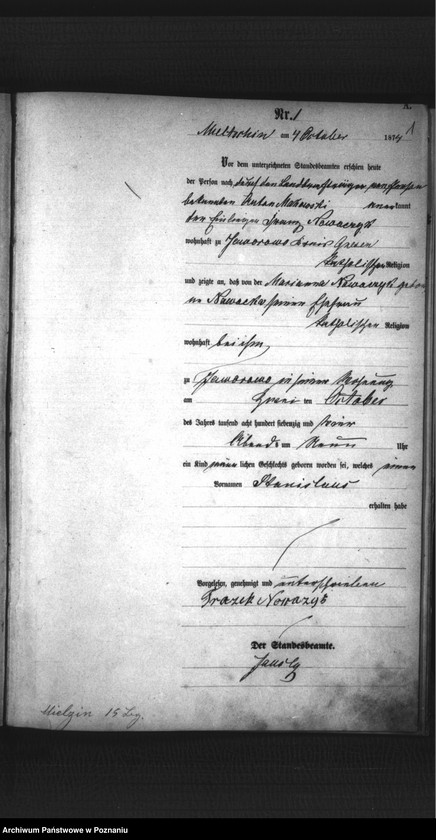 A.
Nr. 1
1
Mieltschin am 4 October 1874
Vor dem unterzeichneten Standesbeamten erschien heute
der Person nach durch den
bekannten Anton anerkannt
der Franz Nowaczyk
wohnhaft zu Jaworowo Kreis Gnesen
katholischer Religion
und zeigte an, daß von der Marianna Nowaczyk gebore
ne Nowacka seiner Ehefrau
katholischer Religion
wohnhaft bei ihm
zu Jaworowo in seiner Wohnung
am zwei ten October
des Jahrs tausend acht hundert siebenzig und vier
Abends um Neun Uhr
ein Kind männlichen Geschlechts geboren worden sei, welches einen
Vornamen Stanislaus
erhalten habe
Vorgelesen, genehmigt und unterschrieben
Der Standesbeamte.
Mielżin 15
Archiwum Państwowe w Poznaniu